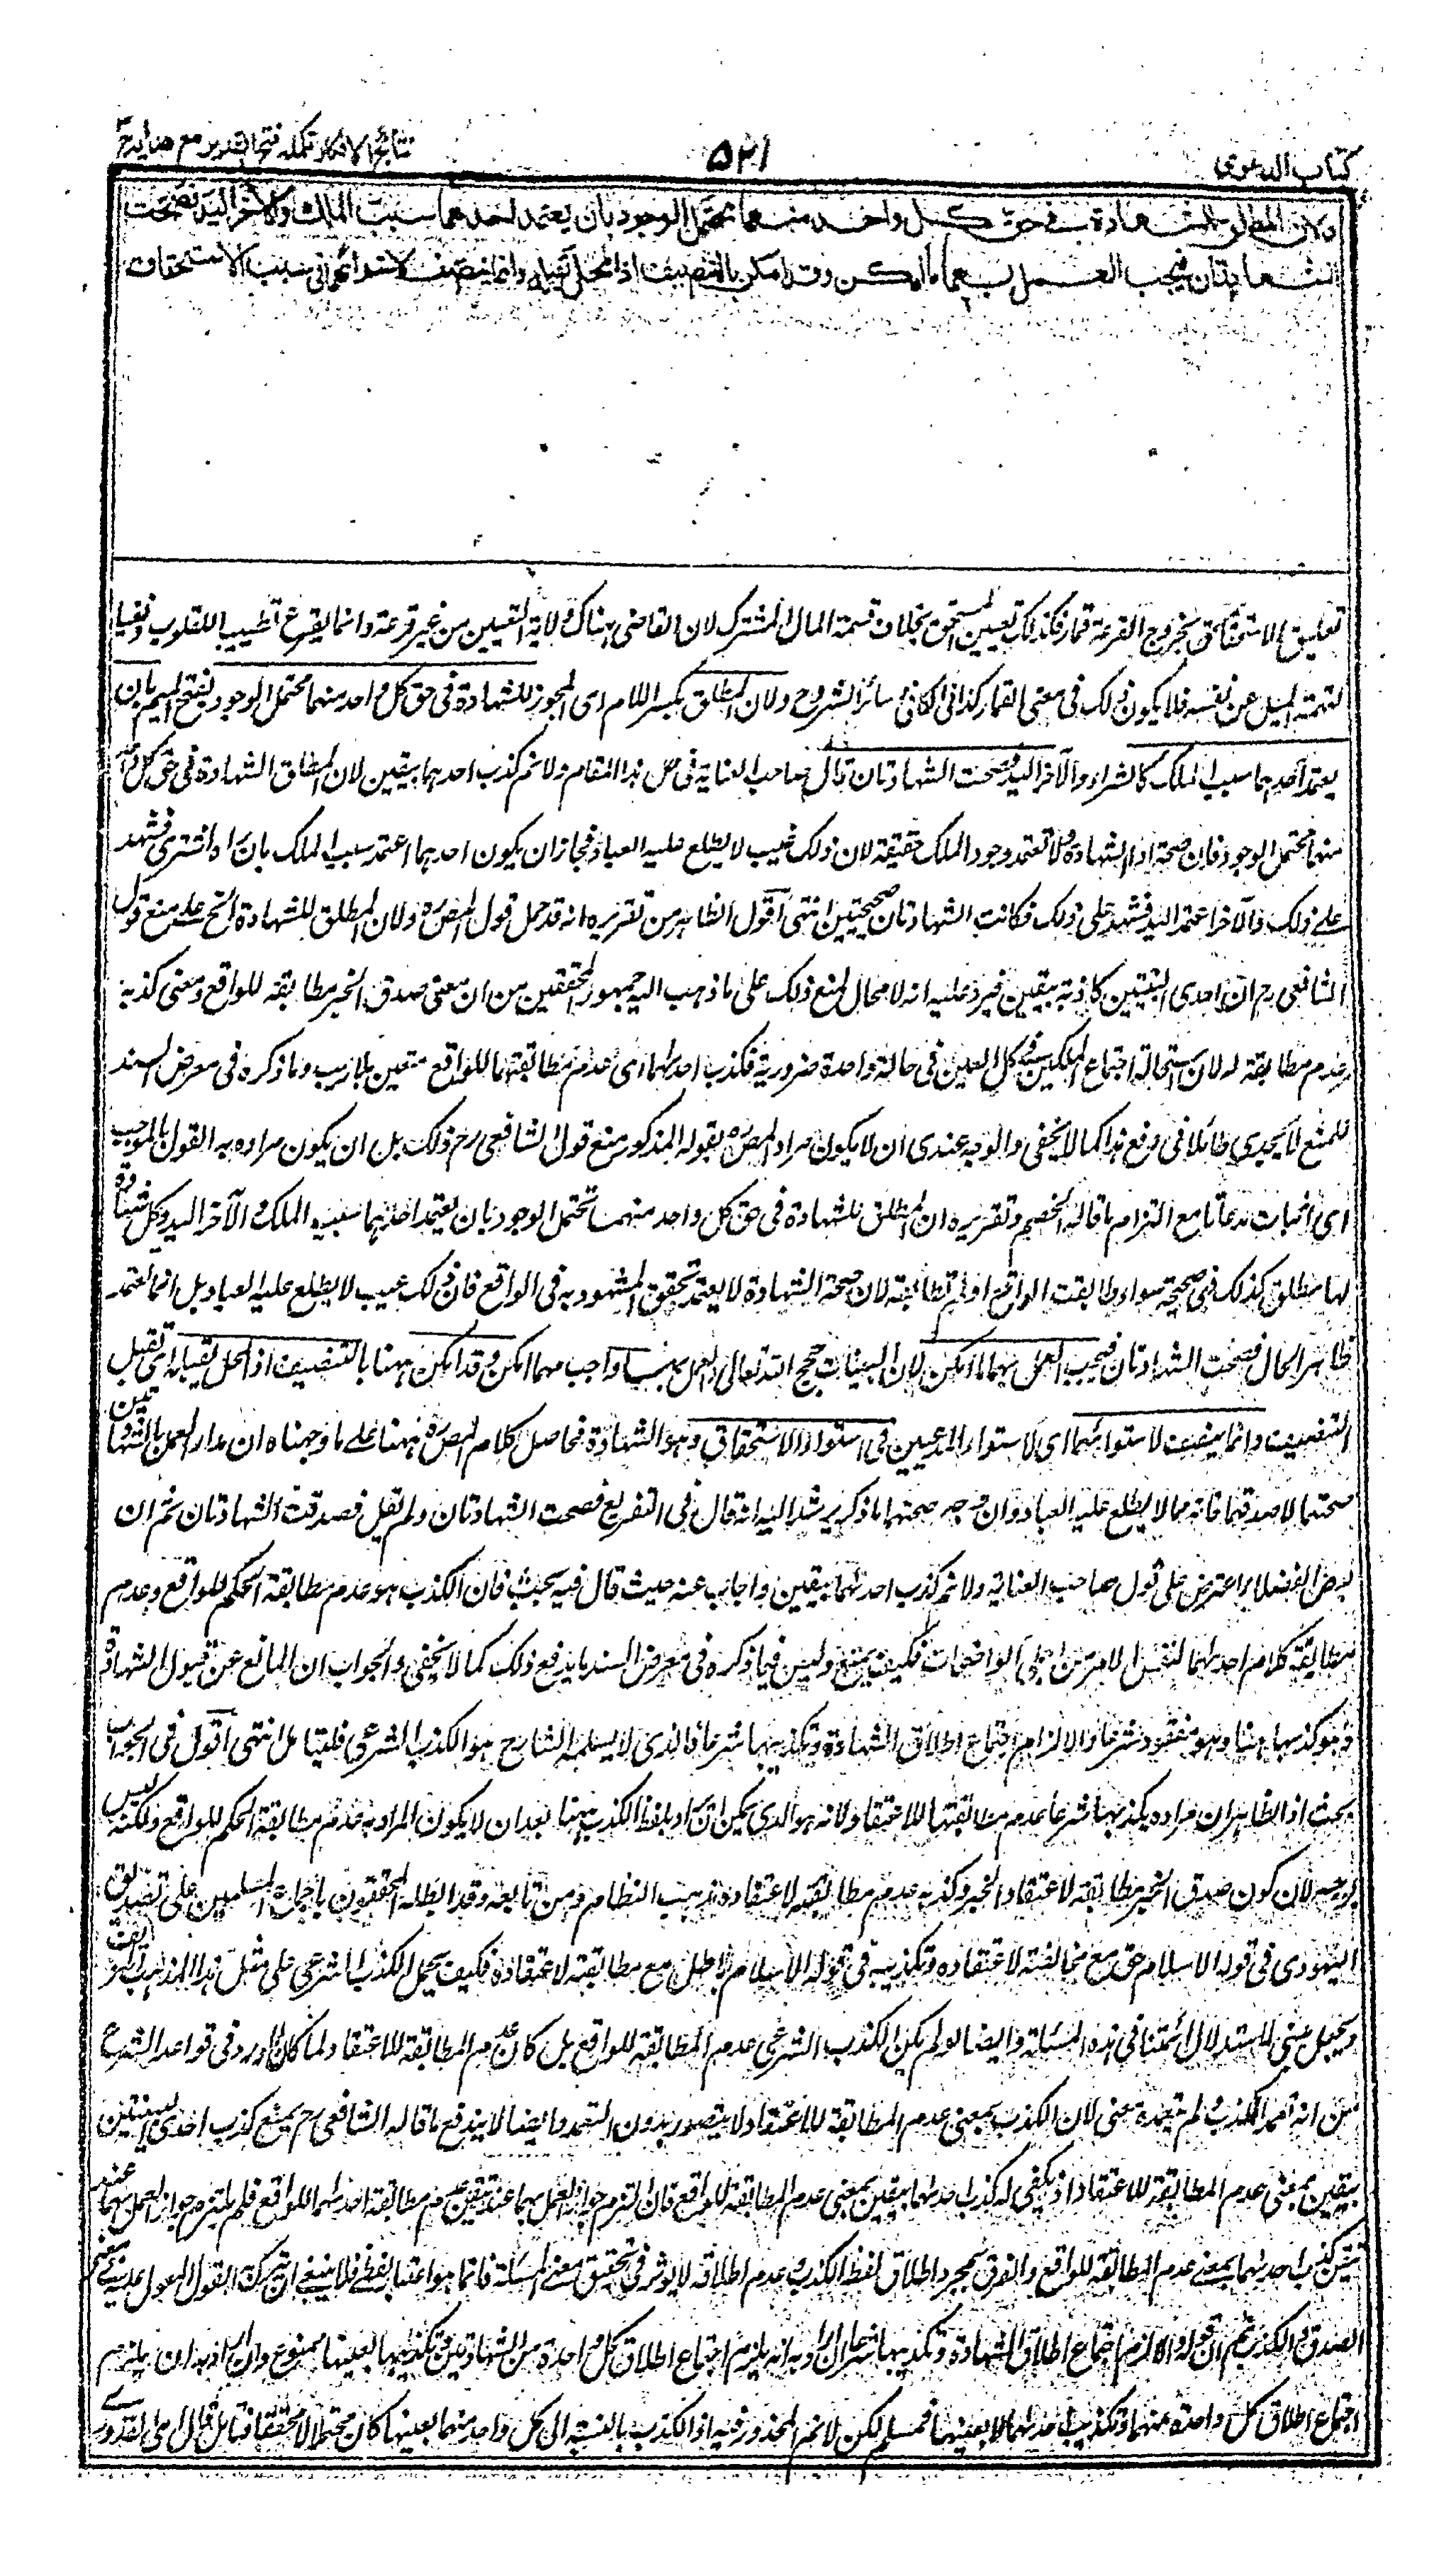 كتاب الدعوى
٥٢١
نتائج الافكار تكمله فتح القدير مع هدايه ج
ولان المطلق للشهادة في حق كل واحد منهما محتمل الوجود بان يعتمد احدهما سبب الملك والآخر اليد فصحت
الشهادتان فيجب العمل بهما ما امكن وقد امكن بالتنصيف اذ المحل يقبله وانما ينصف لاستوائهما في سبب الاستحقاق
تعليق الاستحقاق بخروج القرعة قمار فكذلك تعيين المستحق بخلاف قسمة المال المشترك لان للقاضى هناك ولاية التعيين من غير قرعة وانما يقرع تطييبا للقلوب ونفيا
لتهمة الميل عن نفسه فلا يكون ذلك فى معنى القمار كذا فى الكافى و سائر الشروح ولان المطلق بكسر اللام اى المجوز للشهادة فى حق كل واحد منهما محتمل الوجود بفتح الميم بان
يعتمد احدهما سبب الملك كالشراء والآخر اليد فصحت الشهادتان قال صاحب العناية فى حل هذا المقام ولا نم كذب احدهما بيقين لان المطلق للشهادة فى حق كل واحد
منهما محتمل الوجود فان صحة اداء الشهادة لا تعتمد وجود الملك حقيقة لان ذلك غيب لا يطلع عليه العباد فجاز ان يكون احدهما اعتمد سبب الملك بان رآه اشترى فشهد
على ذلك والآخر اعتمد اليد فشهد على ذلك فكانت الشهادتان صحيحتين انتهى اقول الظاهر من تقريره انه قد حمل قول المصره ولان المطلق للشهادة الخ على منع قول
الشافعى رح ان احدى البينتين كاذبة بيقين فيرد عليه انه لا مجال لمنع ذلك على ما ذهب اليه جمهور المحققين من ان معنى صدق الخبر مطابقته للواقع ومعنى كذبه
عدم مطابقته له لان استحالة اجتماع الملكين فى كل العين فى حالة واحدة ضرورية فكذب احدهما اى عدم مطابقتها للواقع متعين بلا ريب وما ذكره فى معرض السند
للمنع لا يجدى طائلا فى دفع هذا كما لا يخفى والوجه عندى ان لا يكون مراد المصره بقوله المذكور منع قول الشافعى رح ذلك بل ان يكون مراده به القول بالموجب
اى اثبات مدعانا مع التزام ما قاله الخصم وتقريره ان المطلق للشهادة فى حق كل واحد منهما محتمل الوجود بان يعتمد احدهما سبب الملك والآخر اليد وكل شهادة
لها مطلق كذلك فهى صحيحة سواء طابقت الواقع او لم تطابقه لان صحة الشهادة لا يعتمد تحقق المشهود به فى الواقع فان ذلك غيب لا يطلع عليه العباد بل انما تعتمد
ظاهر الحال فصحت الشهادتان فيجب العمل بهما ما امكن لان البينات حجج الله تعالى والعمل بها واجب مهما امكن وقد امكن ههنا بالتنصيف اذ المحل يقبله اى يقبل
التنصيف وانما ينصف لاستوائهما اى لاستواء المدعيين فى استواء الاستحقاق وهو الشهادة فحاصل كلام المصره ههنا على ما وجهناه ان مدار العمل بالشهادتين
صحتهما لا صدقهما فانه مما لا يطلع عليه العباد وان وجه صحتهما ما ذكر يرشد اليه انه قال فى التفريع فصحت الشهادتان ولم يقل فصدقت الشهادتان ثم ان
بعض الفضلاء اعترض على قول صاحب العناية ولا نم كذب احدهما بيقين واجاب عنه حيث قال فيه بحث فان الكذب هو عدم مطابقة الحكم للواقع وعدم
مطابقة كلام احدهما لنفس الامر من اجلى الواضحات فكيف يمنع وليس فيما ذكره فى معرض السند ما يدفع ذلك كما لا يخفى والجواب ان المانع عن قبول الشهادة
هو كذبها ههنا وهو مفقود شرعا والا لزم اجتماع اطلاق الشهادة وتكذيبها شرعا فالذى لا يسلمه الشارح هو الكذب الشرعى فليتامل انتهى اقول فى الجواب
بحث اذ الظاهر ان مراده بكذبها شرعا عدم مطابقتها للاعتقاد لانه هو الذى يمكن ان يراد بلفظ الكذب ههنا بعد ان لا يكون المراد به عدم مطابقة الحكم للواقع ولكنه ليس
بوجه لان كون صدق الخبر مطابقته لاعتقاد المخبر وكذبه عدم مطابقته لاعتقاده مذهب النظام ومن تابعه وقد ابطله المحققون باجماع المسلمين على تصديق
اليهودى فى قوله الاسلام حق مع مخالفته لاعتقاده وتكذيبه فى قوله الاسلام باطل مع مطابقته لاعتقاده فكيف يحمل الكذب الشرعى على مثل هذا المذهب المزيف
ويجعل مبنى لاستدلال ائمتنا فى هذه المسئلة وايضا لو لم يكن الكذب الشرعى عدم المطابقة للواقع بل كان عدم المطابقة للاعتقاد لما كان لما ورد فى قواعد الشرع
من انه تعمد الكذب ولم يتعمده معنى لان الكذب بمعنى عدم المطابقة للاعتقاد لا يتصور بدون التعمد وايضا لا يندفع ما قاله الشافعى رح بمنع كذب احدى البينتين
بيقين بمعنى عدم المطابقة للاعتقاد اذ يكفى له كذب احدهما بيقين بمعنى عدم المطابقة للواقع فان التزم جواز العمل بهما عند تيقن عدم مطابقة احدهما للواقع فلم لم يلتزم جواز العمل بهما عند
تيقن كذب احدهما بمعنى عدم المطابقة للواقع والفرق بمجرد اطلاق لفظ الكذب وعدم اطلاقه لا يؤثر فى تحقق معنى المسئلة فانما هو اعتبار لفظى فلا ينبغى ان يترك القول المعول عليه فى معنى
الصدق والكذب ثم ان قوله والا لزم اجتماع اطلاق الشهادة وتكذيبها شرعا ان اراد به انه يلزم اجتماع اطلاق كل واحدة من الشهادتين وتكذيبها بعينها ممنوع وان اراد به ان يلزم
اجتماع اطلاق كل واحدة منهما وتكذيب احدهما لا بعينها فمسلم لكن لا نم المحذور فيه اذ الكذب بالنسبة الى كل واحد منهما بعينها كان محتملا لا محققا فتامل قال اى القدورى